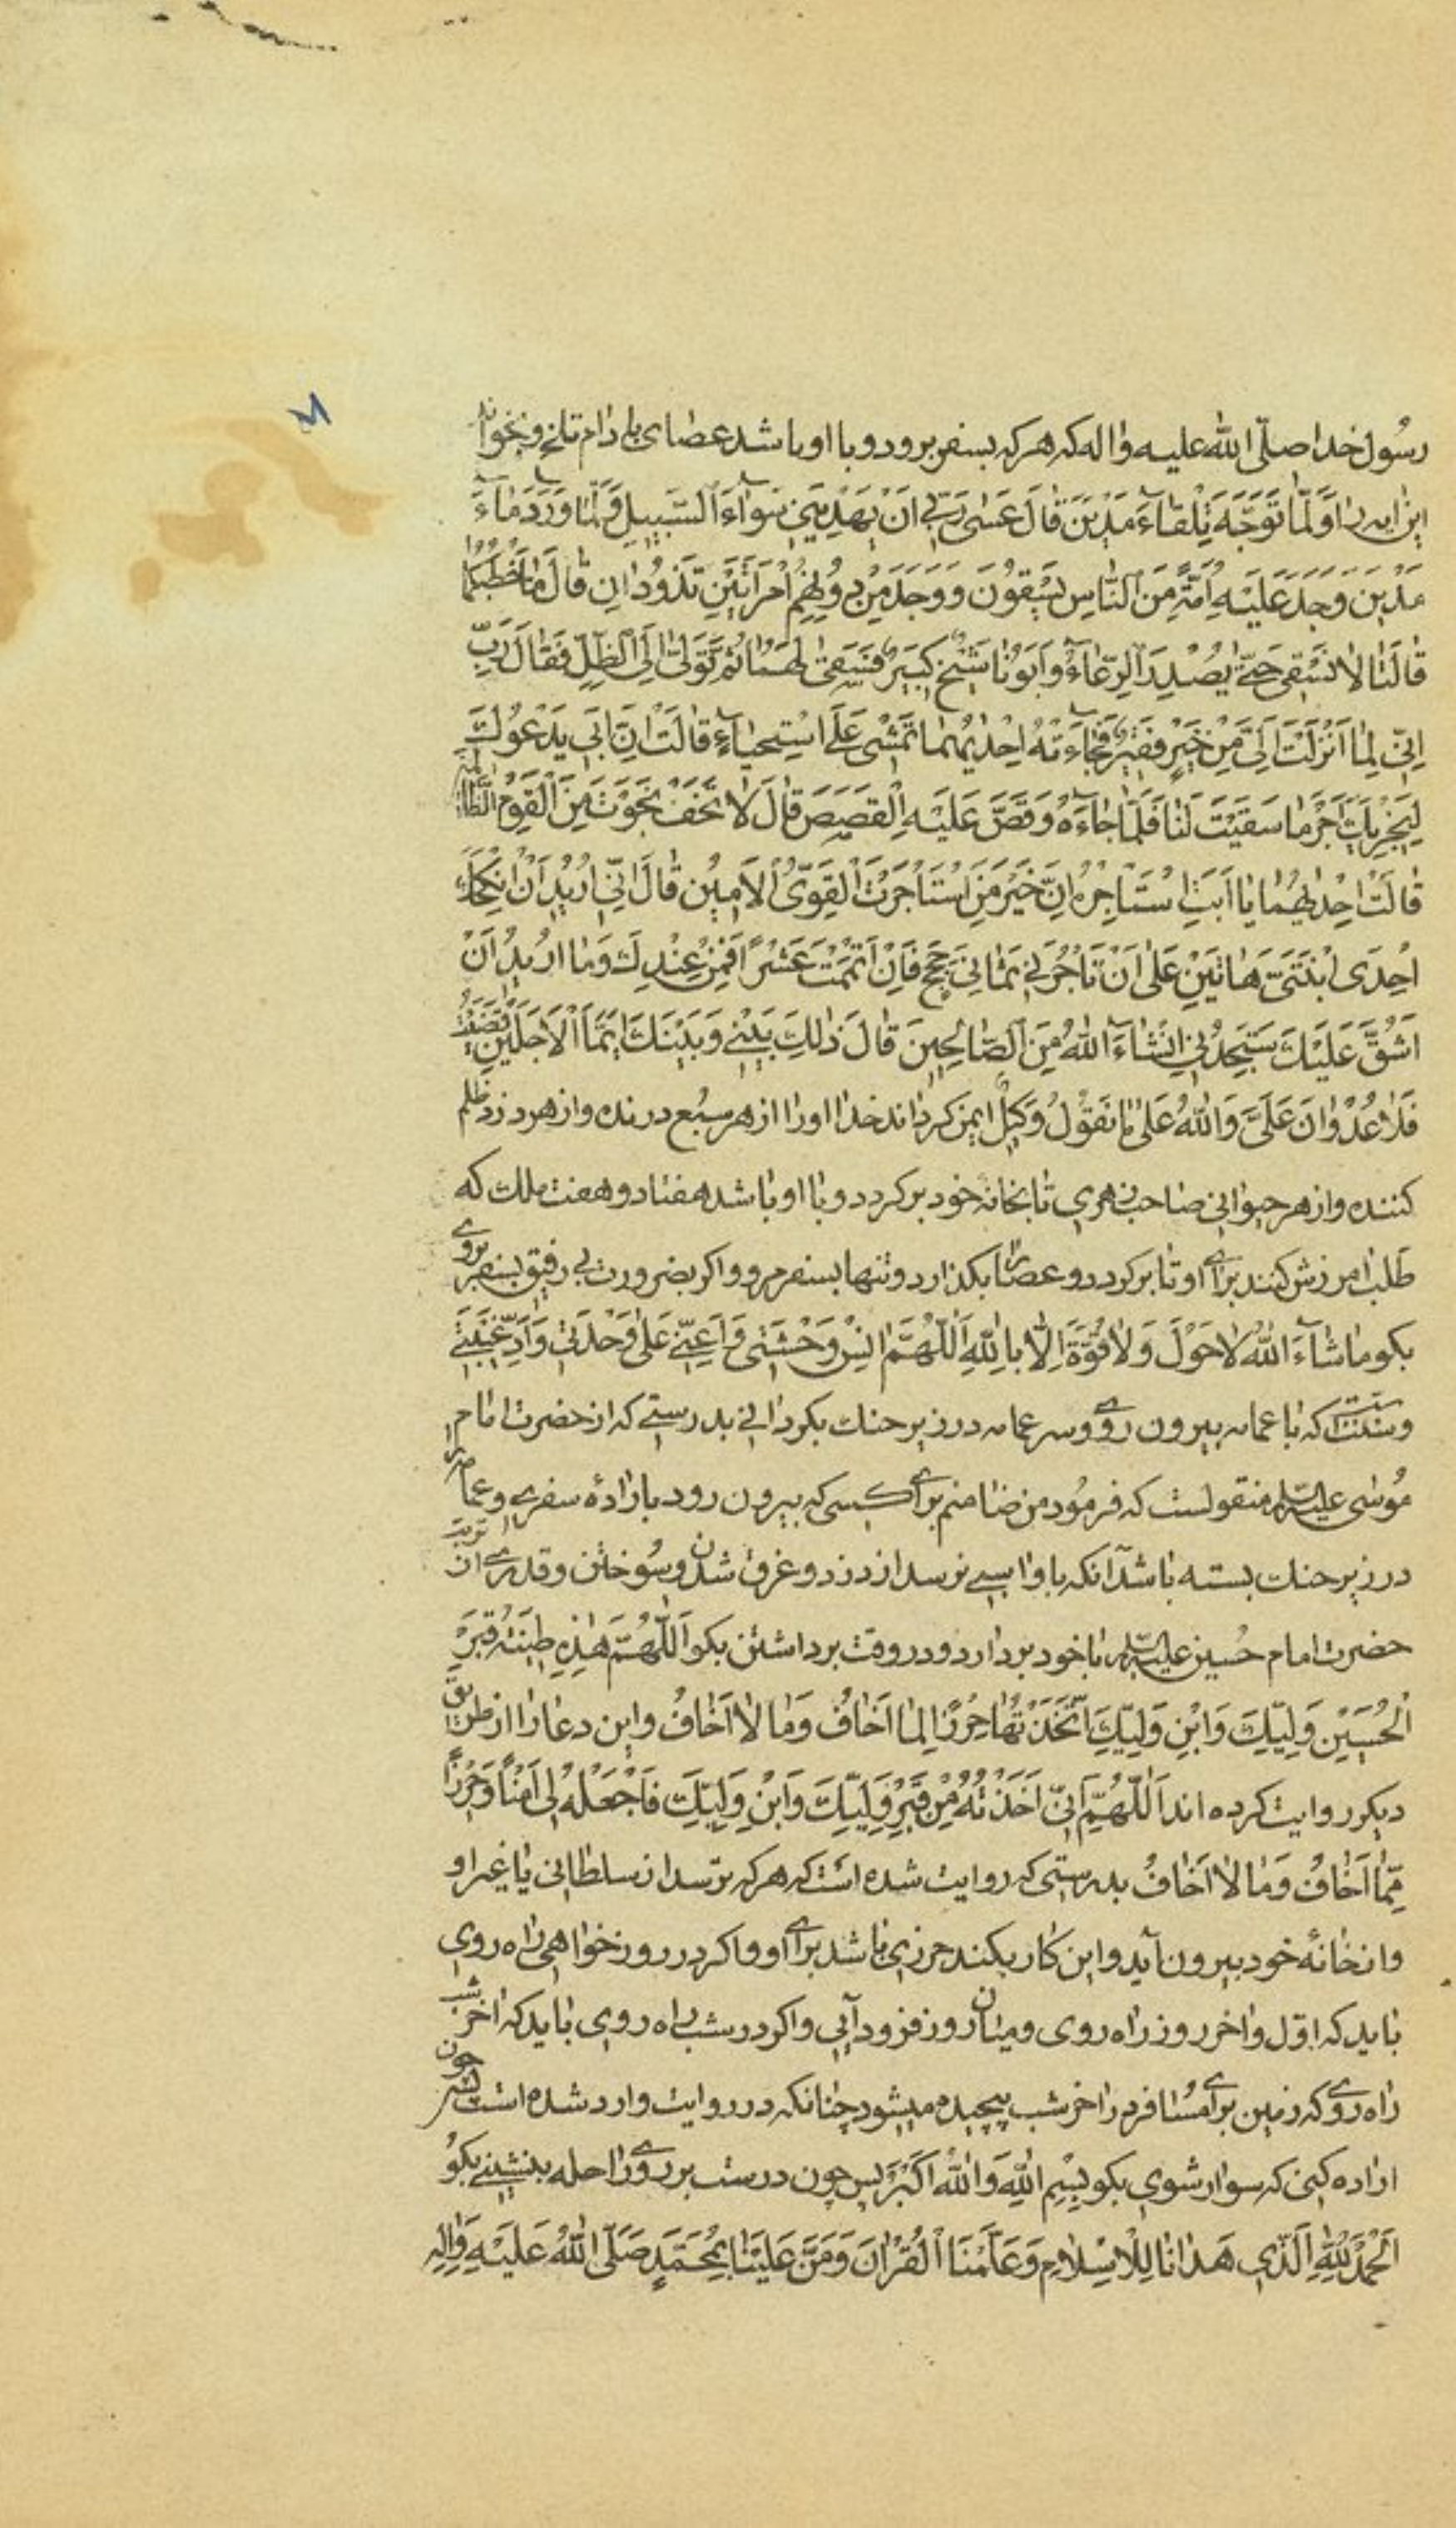 رسُول خدا صلّی الله علیه واله که هرکه بسفر برود و با او باشد عصای بادام تلخ و بخواند
این ایه را وَلَمّا تَوَجَّهَ تِلْقآءَ مَدْیَنَ قٰالَ عَسٰی رَبّی اَنْ یَهْدِیَنی سَوٰآءَ السَّبیلِ وَلَمّا وَرَدَ مٰاءَ
مَدْیَنَ وَجَدَ عَلَیْهِ اُمَّةً مِنَ النّاسِ یَسْقُونَ وَوَجَدَ مِنْ دُونِهِمْ امْرَاَتَیْنِ تَذُودٰانِ قٰالَ مٰا خَطْبُکُمٰا
قٰالَتٰا لٰا نَسْقی حَتّٰی یُصْدِرَ الرِّعٰآءُ وَاَبُونٰا شَیْخٌ کَبیرٌ فَسَقٰی لَهُمٰا ثُمَّ تَوَلّٰی اِلَی الظِّلِّ فَقٰالَ رَبِّ
اِنّی لِمٰا اَنْزَلْتَ اِلَیَّ مِنْ خَیْرٍ فَقیرٌ فَجٰآءَتْهُ اِحْدٰیهُمٰا تَمْشی عَلَی اسْتِحیٰآءٍ قٰالَتْ اِنَّ اَبی یَدْعُوکَ
لِیَجْزِیَکَ اَجْرَ مٰا سَقَیْتَ لَنٰا فَلَمّٰا جٰاءَهُ وَقَصَّ عَلَیْهِ الْقَصَصَ قٰالَ لٰا تَخَفْ نَجَوْتَ مِنَ الْقَوْمِ الظّالِمینَ
قٰالَتْ اِحْدٰیهُمٰا یٰا اَبَتِ اسْتَاْجِرْهُ اِنَّ خَیْرَ مَنِ اسْتَاْجَرْتَ الْقَوِیُّ الْاَمینُ قٰالَ اِنّی اُریدُ اَنْ اُنْکِحَکَ
اِحْدَی ابْنَتَیَّ هٰاتَیْنِ عَلٰی اَنْ تَاْجُرَنی ثَمٰانِیَ حِجَجٍ فَاِنْ اَتْمَمْتَ عَشْرًا فَمِنْ عِنْدِکَ وَمٰا اُریدُ اَنْ
اَشُقَّ عَلَیْکَ سَتَجِدُنی اِنْشٰاءَ اللهُ مِنَ الصّٰالِحینَ قٰالَ ذٰلِکَ بَیْنی وَبَیْنَکَ اَیَّمَا الْاَجَلَیْنِ قَضَیْتُ
فَلٰا عُدْوٰانَ عَلَیَّ وَاللهُ عَلٰی مٰا نَقُولُ وَکیلٌ ایمن کرداند خدا اورا از هر سبُع درنده و از هر دزد ظلم
کننده و از هر حیوانی صاحب زهری تا بخانه خود برکردد و با او باشد هفتاد و هفت ملک که
طلب امرزش کنند برای او تا برکردد و عصا را بکذارد و تنها بسفر مرو و اکر بضرورت بی رفیق بسفر بروی
بکو مٰاشٰآءَ اللهُ لٰا حَوْلَ وَلٰا قُوَّةَ اِلّٰا بِاللهِ اَللّٰهُمَّ انِسْ وَحْشَتی وَاَعِنّی عَلٰی وَحْدَتی وَاَدِّ غَیْبَتی
و سنّتست که با عمامه بیرون روی و سر عمامه در زیر حنک بکردانی بدرستی که از حضرت امام
مُوسٰی علیه السلم منقولست که فرمُود من ضامنم برای کسی که بیرون رود باراده سفری و عمامه را
در زیر حنک بسته باشد آنکه باو اسیبی نرسد از دزد و غرق شدن و سُوختن و قدری از تربت
حضرت امام حُسین علیه السلم را با خود بردارد و در وقت برداشتن بکو اَللّٰهُمَّ هٰذِهِ طینَتُ قَبْرِ
الْحُسَیْنِ وَلِیِّکَ وَابْنِ وَلِیِّکَ اتَّخَذْتُهٰا حِرْزًا لِمٰا اَخٰافُ وَمٰا لٰا اَخٰافُ و این دعا را از طریق
دیکر روایت کرده اند اَللّٰهُمَّ اِنّی اَخَذْتُهُ مِنْ قَبْرِ وَلِیِّکَ وَابْنِ وَلِیِّکَ فَاجْعَلْهُ لی اَمْنًا وَحِرْزًا
مِمّٰا اَخٰافُ وَمٰا لٰا اَخٰافُ بدرستی که روایت شده است که هر که ترسد از سلطانی یا غیر او
و از خانهٔ خود بیرون آید و این کار بکند حرزی باشد برای او و اکر در روز خواهی راه روی
باید که اوّل و اخر روز راه روی و میان روز فرود آیی و اکر در شب راه روی باید که اخر شب
راه روی که زمین برای مُسافر در اخر شب پیچیده میشود چنانکه در روایت وارد شده است پس چون
اراده کنی که سوار شوی بکو بِسْمِ اللهِ وَاللهُ اَکْبَرُ پس چون درست بر روی راحله بنشینی بکو
اَلْحَمْدُ لِلّٰهِ الَّذی هَدٰانٰا لِلْاِسْلٰامِ وَعَلَّمَنَا الْقُرْاٰنَ وَمَنَّ عَلَیْنٰا بِمُحَمَّدٍ صَلَّی اللهُ عَلَیْهِ وَاٰلِهِ